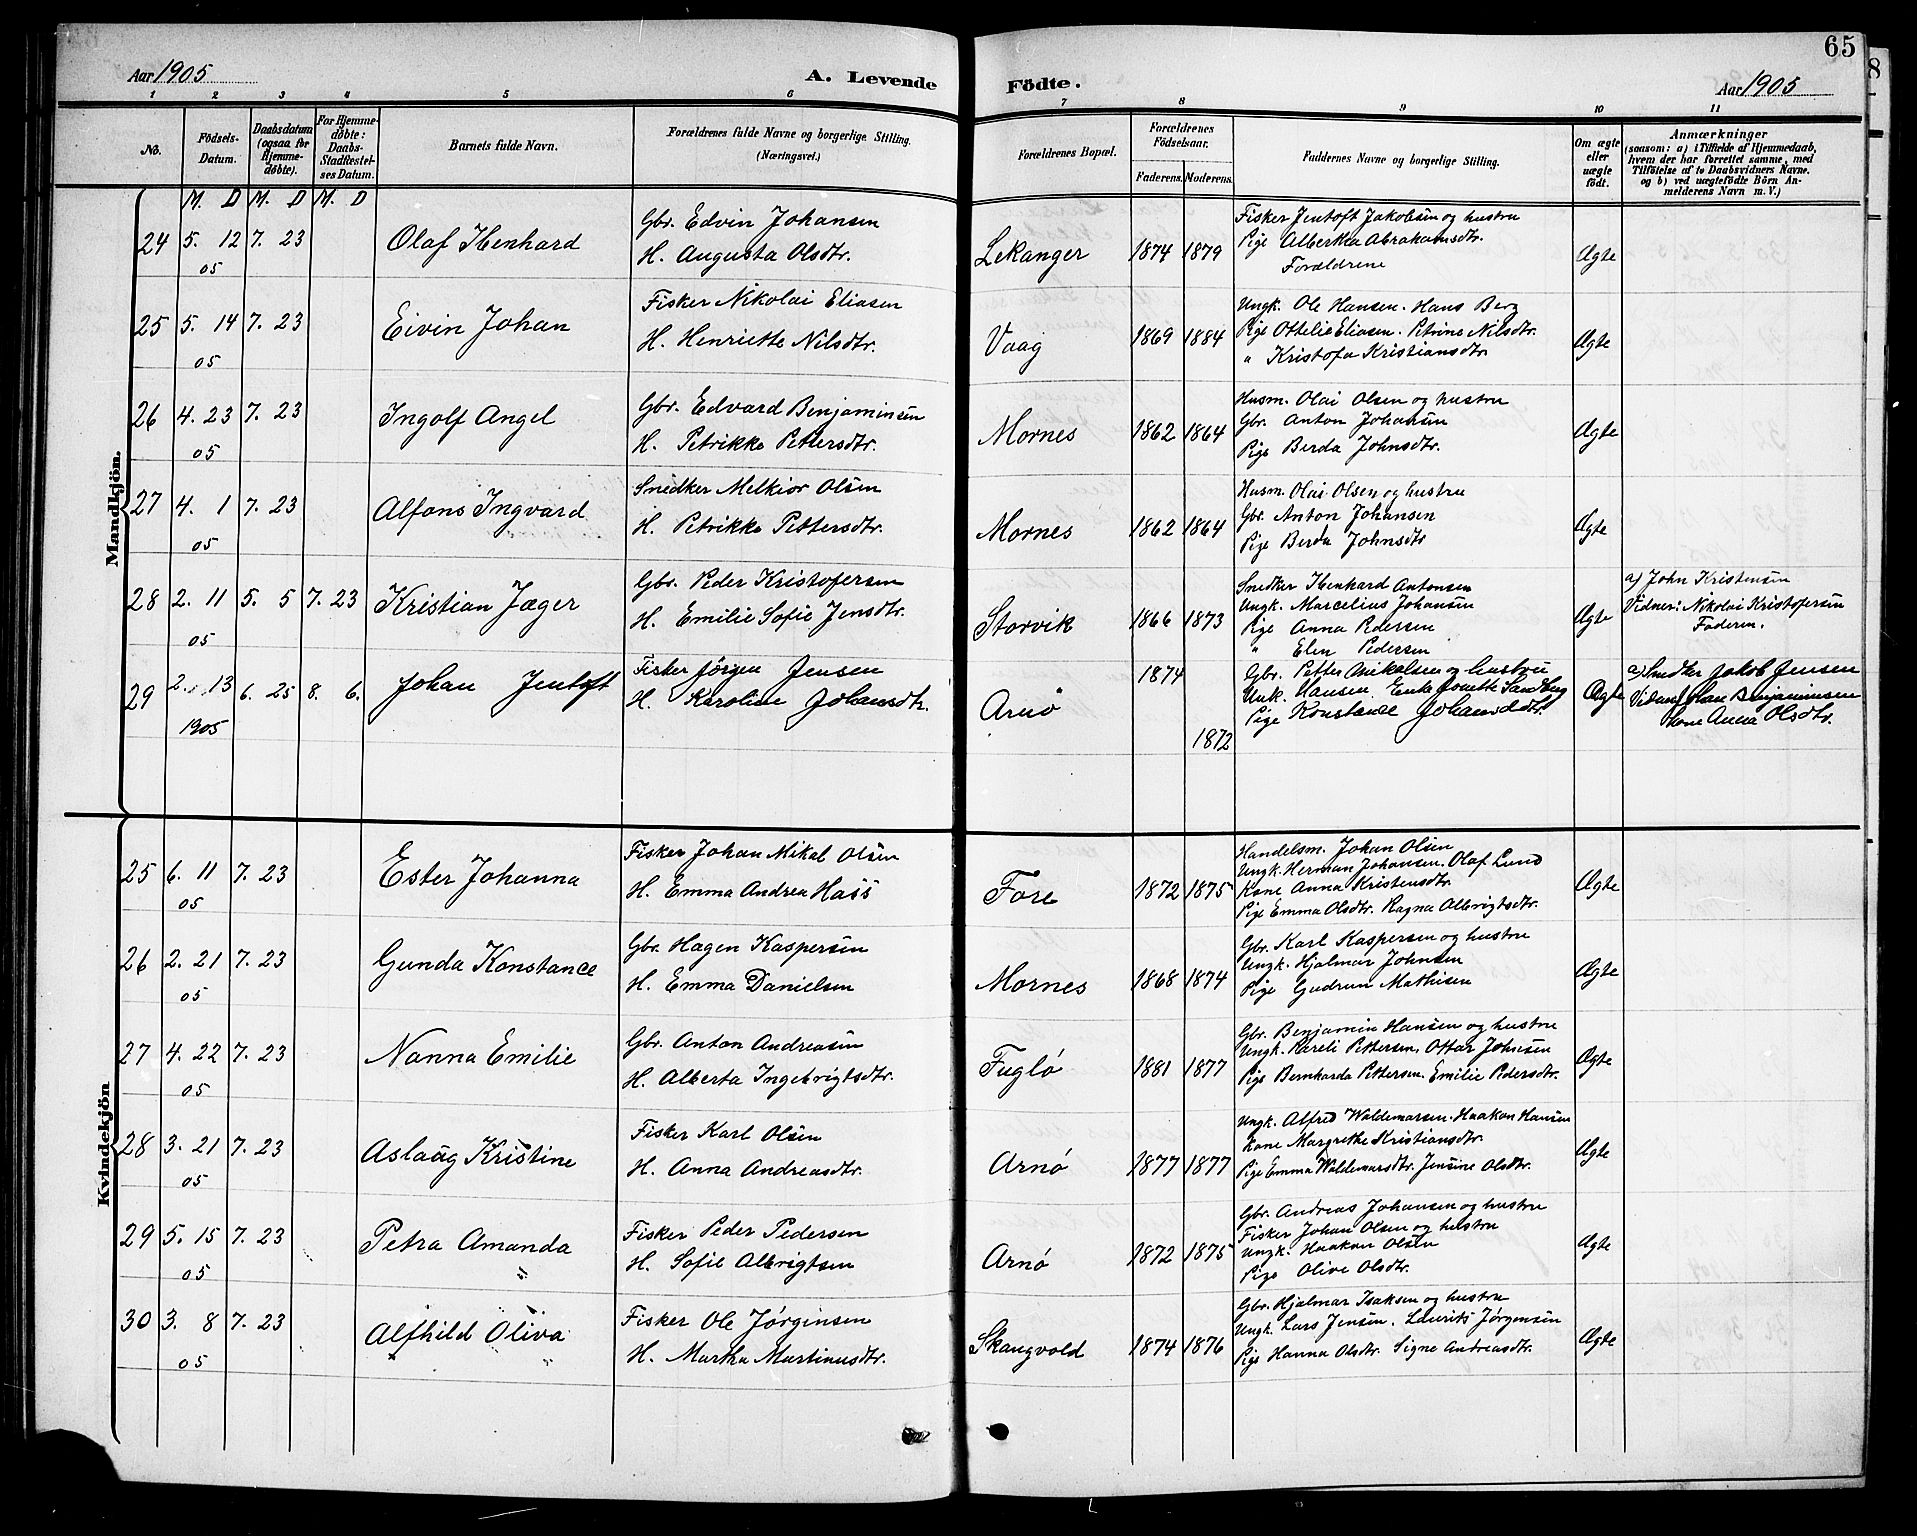 65
Aar 1905
A. Levende
Födte.
Aar 1905
1 2 3 4 5 6 7 8 9 10 11
No.
Födsels-Datum.
Daabsdatum (ogsaa for Hjemmedöbte).
For Hjemmedöbte: Daabs-Stadfæstelses Datum.
Barnets fulde Navn.
Forældrenes fulde Navne og borgerlige Stilling.
(Næringsvei.)
Forældrenes Bopæl.
Forældrenes Födselsaar.
Faderens. Moderens.
Faddernes Navne og borgerlige Stilling.
Om ægte eller uægte födt.
Anmærkninger
(saasom: a) i Tilfælde af Hjemmedaab, hvem der har forrettet samme, med Tilföielse af to Daabsvidners Navne, og b) ved uægtefödte Börn Anmelderens Navn m. V.)
M. D M. D M. D
Mandkjön.
24 5. 12 7. 23 Olaf Henhard Gbr. Edvin Johansen Lekanger 1874 1879 Fisker Jentoft Jakobsen og hustru Ægte
05 H. Augusta Olsdtr. Pige Alberthea Abrahamsdtr.
Forældrene
25 5. 14 7. 23 Eivin Johan Fisker Nikolai Eliasen Vaag 1869 1884 Ungk. Ole Hansen. Hans Berg Ægte
05 H. Henriette Nilsdtr. Pige Ottelie Eliasen. Petrine Nilsdtr.
" Kristofa Kristiansdtr
26 4. 23 7. 23 Ingolf Angel Gbr. Edvard Benjaminsen Mornes 1862 1864 Husm. Olai Olsen og hustru Ægte
05 H. Petrikke Pettersdtr. Gbr. Anton Johansen
Pige Berda Johnsdtr.
27 4. 1 7. 23 Alfons Ingvard Snedker Melkior Olsen Mornes 1862 1864 Husm. Olai Olsen og hustru Ægte
05 H. Petrikke Pettersdtr. Gbr. Anton Johansen
Pige Berda Johnsdtr
28 2. 11 5. 5 7. 23 Kristian Jæger Gbr. Peder Kristofersen Storvik 1866 1873 Snedker Henhard Antonsen Ægte a) John Kristensen
05 H. Emilie Sofie Jensdtr. Ungk. Marcelius Johansen Vidner: Nikolai Kristofersen
Pige Anna Pedersen Faderen.
" Elen Pedersen
29 2. 13 6. 25 8. 6. Johan Jentoft Fisker Jörgen Jensen Arnø 1874 1872 Gbr. Petter Mikalsen og hustru Ægte a) Snedker Jakob Jensen
1905 H. Karoline Johansdtr. Unk. Hansen. Enke Jonette Sandberg
Pige Konstance Johansdtr. Kone Anna Olsdtr.
Kvindekjön
25 6. 11 7. 23 Ester Johanna Fisker Johan Mikal Olsen Fore 1872 1875 Handelsm. Johan Olsen Ægte
05 H. Emma Andrea Hass Ungk. Herman Johansen. Olaf Lund
Kone Anna Kristensdtr.
Pige Emma Olsdtr. Ragna Albrigtsdtr.
26 2. 21 7. 23 Gunda Konstance Gbr. Hagen Kaspersen Mornes 1868 1874 Gbr. Karl Kaspersen og hustru Ægte
05 H. Emma Danielsen Ungk. Hjalmar Johnsen
Pige Gudrun Mathisen
27 4. 22 7. 23 Nanna Emilie Gbr. Anton Andreasen Fuglø 1881 1877 Gbr. Benjamin Hansen og hustru Ægte
05 H. Alberta Ingebrigtsdtr. Ungk. Kareli Pettersen. Ottar Johnsen
Pige Bernharda Pettersen. Emilie Pedersdtr.
28 3. 21 7. 23 Aslaug Kristine Fisker Karl Olsen Arnø 1877 1877 Ungk. Alfred Waldemarsen. Haakon Hansen Ægte
05 H. Anna Andreasdtr. Kone Margrethe Kristiansdtr.
Pige Emma Waldemarsdtr. Jensine Olsdtr.
29 5. 15 7. 23 Petra Amanda Fisker Peder Pedersen Arnø 1872 1875 Gbr. Andreas Johansen og hustru Ægte
05 H. Sofie Albrigtsen Fisker Johan Olsen og hustru
Ungk. Haakon Olsen
Pige Olive Olsdtr.
30 3. 8 7. 23 Alfhild Oliva Fisker Ole Jørginsen Skaugvold 1874 1876 Gbr. Hjalmar Isaksen og hustru Ægte
05 H. Martha Martinusdtr. Ungk. Lars Jensen. Laurits Jørgensen
Pige Hanna Olsdtr. Signe Andreasdtr.